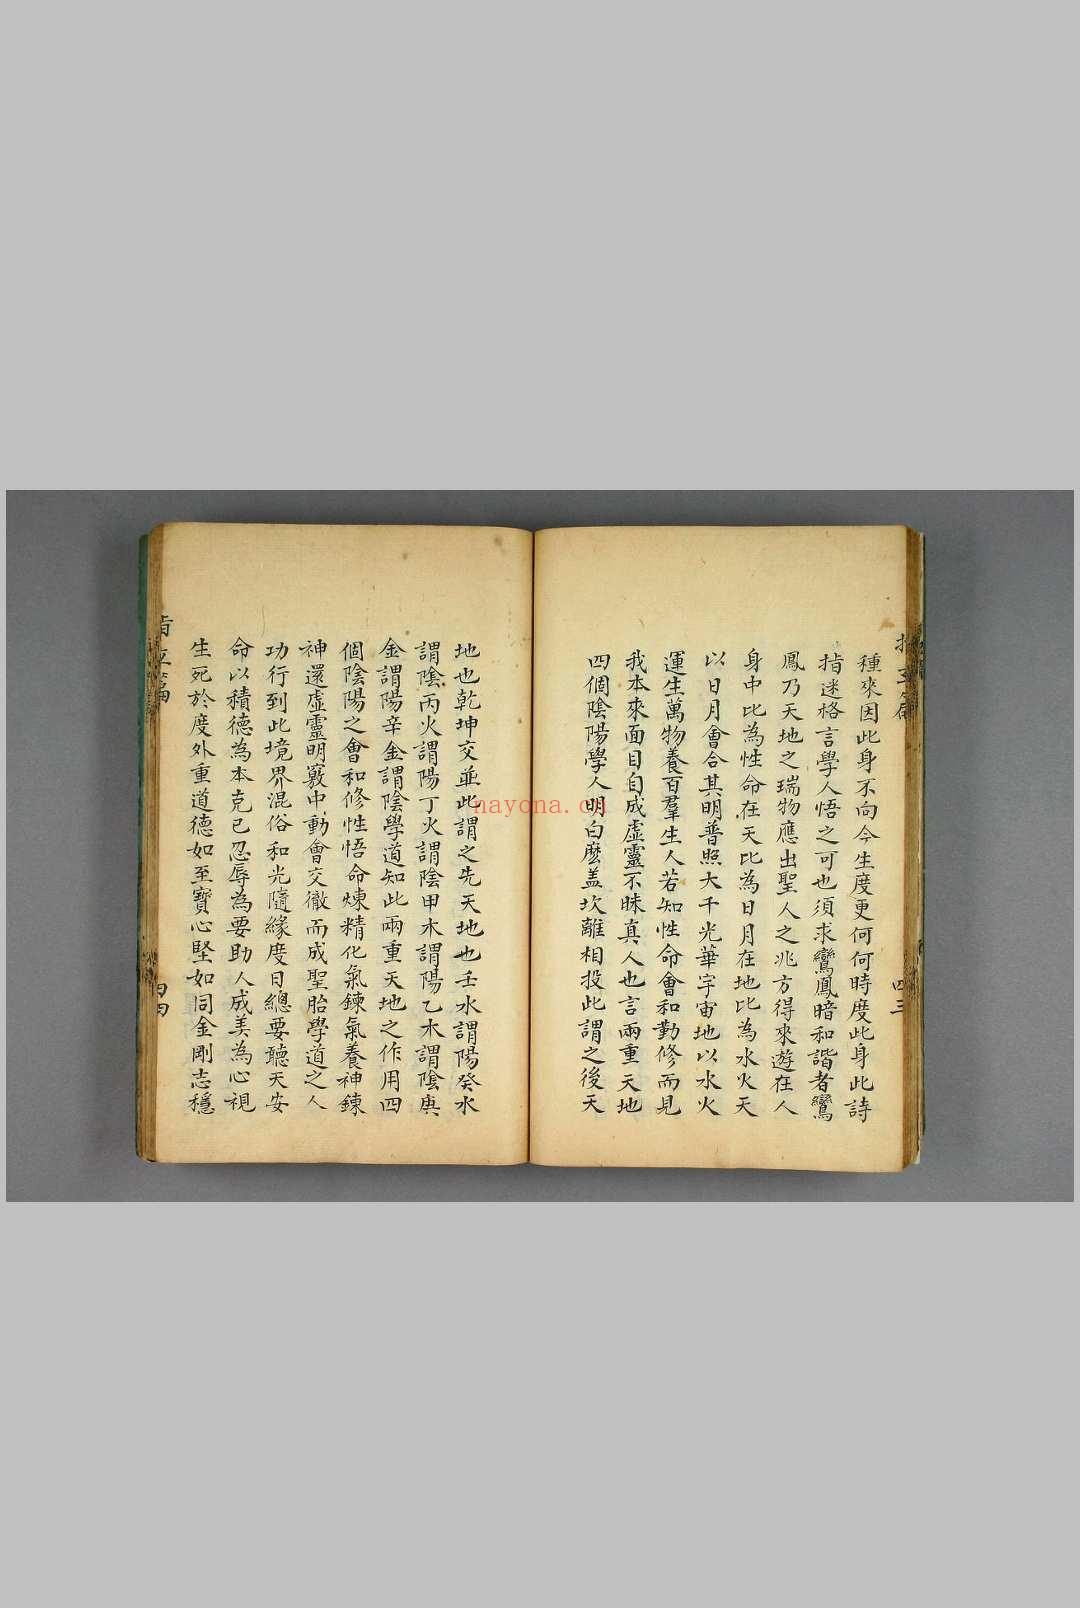 種來因此身不向今生度更何何時度此身此詩
指迷格言學人悟之可也須求鸞鳳暗和諧者鸞
鳳乃天地之瑞物應出聖人之兆方得來遊在人
身中比為性命在天比為日月在地比為水火天
以日月會合其明普照大千光華宇宙地以水火
運生萬物養百羣生人若知性命會和勤修而見
我本來面目自成虛靈不昧真人也言兩重天地
四個陰陽學人明白麽盖坎離相投此謂之後天
四三
地也乾坤交並此謂之先天地也壬水謂陽癸水
謂陰丙火謂陽丁火謂陰甲木謂陽乙木謂陰庚
金謂陽辛金謂陰學道知此兩重天地之作用四
個陰陽之會和修性悟命煉精化氣鍊氣養神鍊
神還虛靈明竅中動會交徹而成聖胎學道之人
功行到此境界混俗和光隨緣度日總要聽天安
命以積德為本克己忍辱為要助人成美為心視
生死於度外重道德如至寶心堅如同金剛志穩
四四
nayona.cn